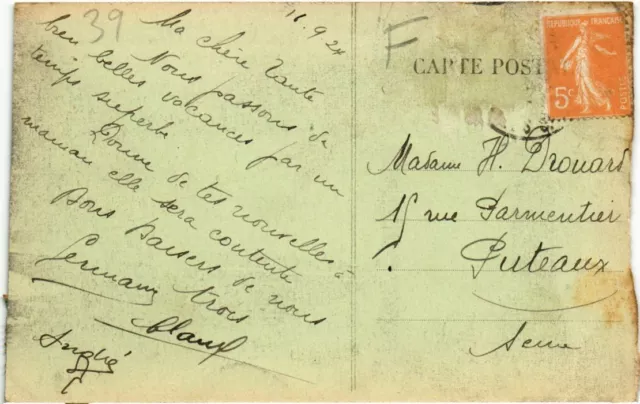 39
11.9.24
Ma chère Tante
Nous passons de
bien belles vacances par un
temps superbe
Donne de tes nouvelles à
maman elle sera contente
Bons baisers de nous
trois
Germaine
André
F
CARTE POST
REPUBLIQUE FRANÇAISE
5c
POSTES
Madame H. Drouard
15 rue Parmentier
Puteaux
Seine